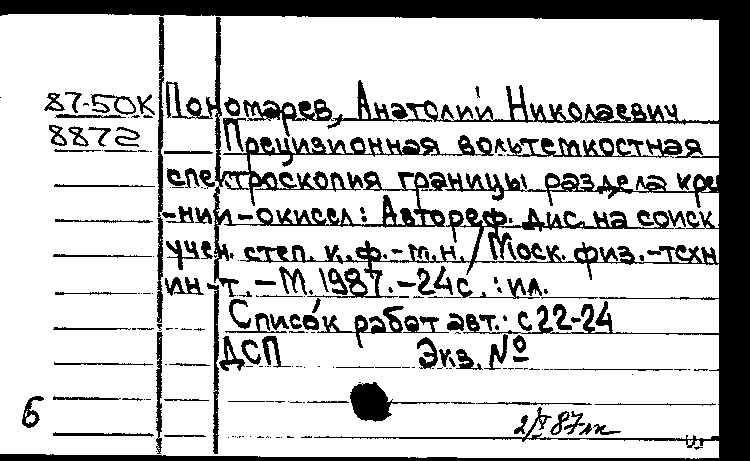 87-50К Пономарев, Анатолий Николаевич
8872 Прецизионная вольтемкостная
спектроскопия границы раздела кре
-ний-окисел: Автореф. дис. на соиск.
учен. степ. к.ф.-м.н. / Моск. физ.-техн
ин-т. - М. 1987. - 24с. : ил.
Список работ авт.: с 22-24
ДСП Экз. №
6